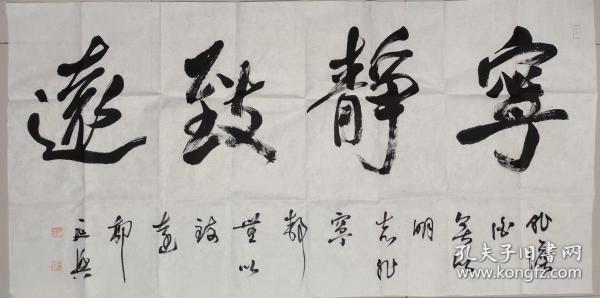 寧靜致遠
非澹
泊
無以
明
志非
寧
靜
無以
致
遠
郭
興
孔夫子旧书网
www.kongfz.com